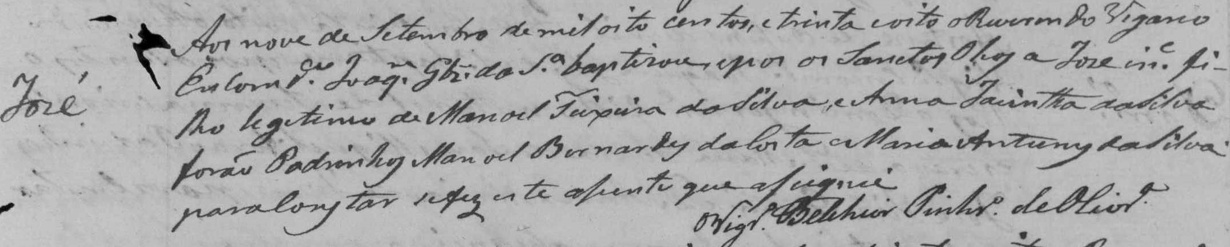 José
Aos nove de Setembro de mil oito centos, e trinta e oito o Reverendo Vigario
Encom.do Joaq.m Glz. da S.a baptizou, e pos os Sanctos Oleos a José in.e fi-
lho legitimo de Manoel Teixeira da Silva, e Anna Jacintha da Silva
forão Padrinhos Manoel Bernardes da Costa e Maria Antunes da Silva
para Constar se fez este assento que assignei
O Vigr.o Belchior Pinhr.o de Olivr.a